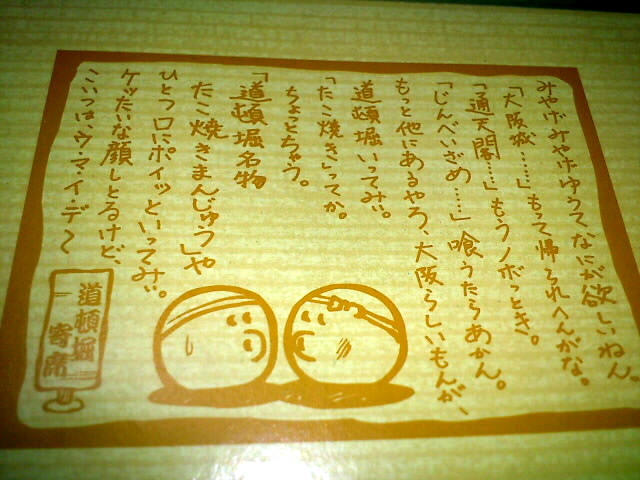 みやげみやげゆうてなにが欲しいねん。
「大阪城……」もって帰られへんがな。
「通天閣……」もうノボっとき。
「じんべいざめ……」喰うたらあかん。
もっと他にあるやろ、大阪らしいもんが、
道頓堀いってみぃ。
「たこ焼き」ってか。
ちょっとちゃう。
「道頓堀名物
たこ焼きまんじゅう」や
ひとつ口にポイッといってみぃ。
ケッたいな顔しとるけど、
こいつは、ウ・マ・イ・デ〜
道頓堀
寄席